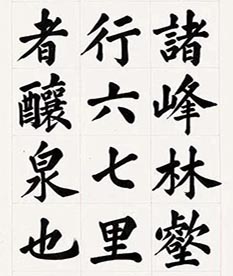 諸峰林壑
行六七里
者釀泉也